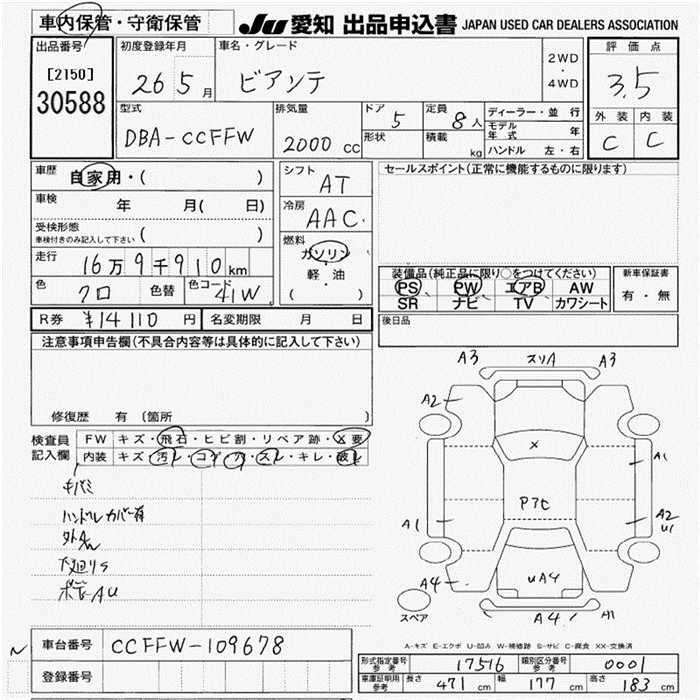 車内保管・守衛保管 JU 愛知 出品申込書 JAPAN USED CAR DEALERS ASSOCIATION
出品番号 初度登録年月 車名・グレード 評価点
[2150] 26 5月 ビアンテ 2WD・4WD 3.5
30588
型式 排気量 ドア 5 定員 8人 ディーラー・並行 外装 内装
DBA-CCFFW 2000 CC 形状 積載 kg モデル年式 年 C C
ハンドル 左・右
車歴 自家用・( ) シフト AT セールスポイント(正常に機能するものに限ります)
車検 年 月( 日) 冷房 AAC
受検形態 ( )
車検付きのみ記入して下さい
燃料 ガソリン
軽・油
( )
走行 16万9千910km
色 クロ 色替 色コード 41W
装備品(純正品に限り○をつけてください) 新車保証書
PS PW エアB AW 有・無
SR ナビ TV カワシート
R券 ¥14110円 名変期限 月 日 後日品
注意事項申告欄(不具合内容等は具体的に記入して下さい)
修復歴 有 (箇所 )
検査員記入欄 FW キズ・飛石・ヒビ割・リペア跡・X要
内装 キズ・汚レ・コゲ・穴・スレ・キレ・破レ
ハンドルカバー有
下廻りS
ボデーAU
A3 スリA A3
A2
X
A1
Pアセ
A1 A2
U1
A4 UA4
スペア A4 A1
A-キズ E-エクボ U-凹み W-補修跡 S-サビ C-腐食 XX-交換済
車台番号 CCFFW-109678
登録番号
型式指定番号 参考 17516 類別区分番号 参考 0001
車庫証明用 参考 長さ 471cm 幅 177cm 高さ 183cm